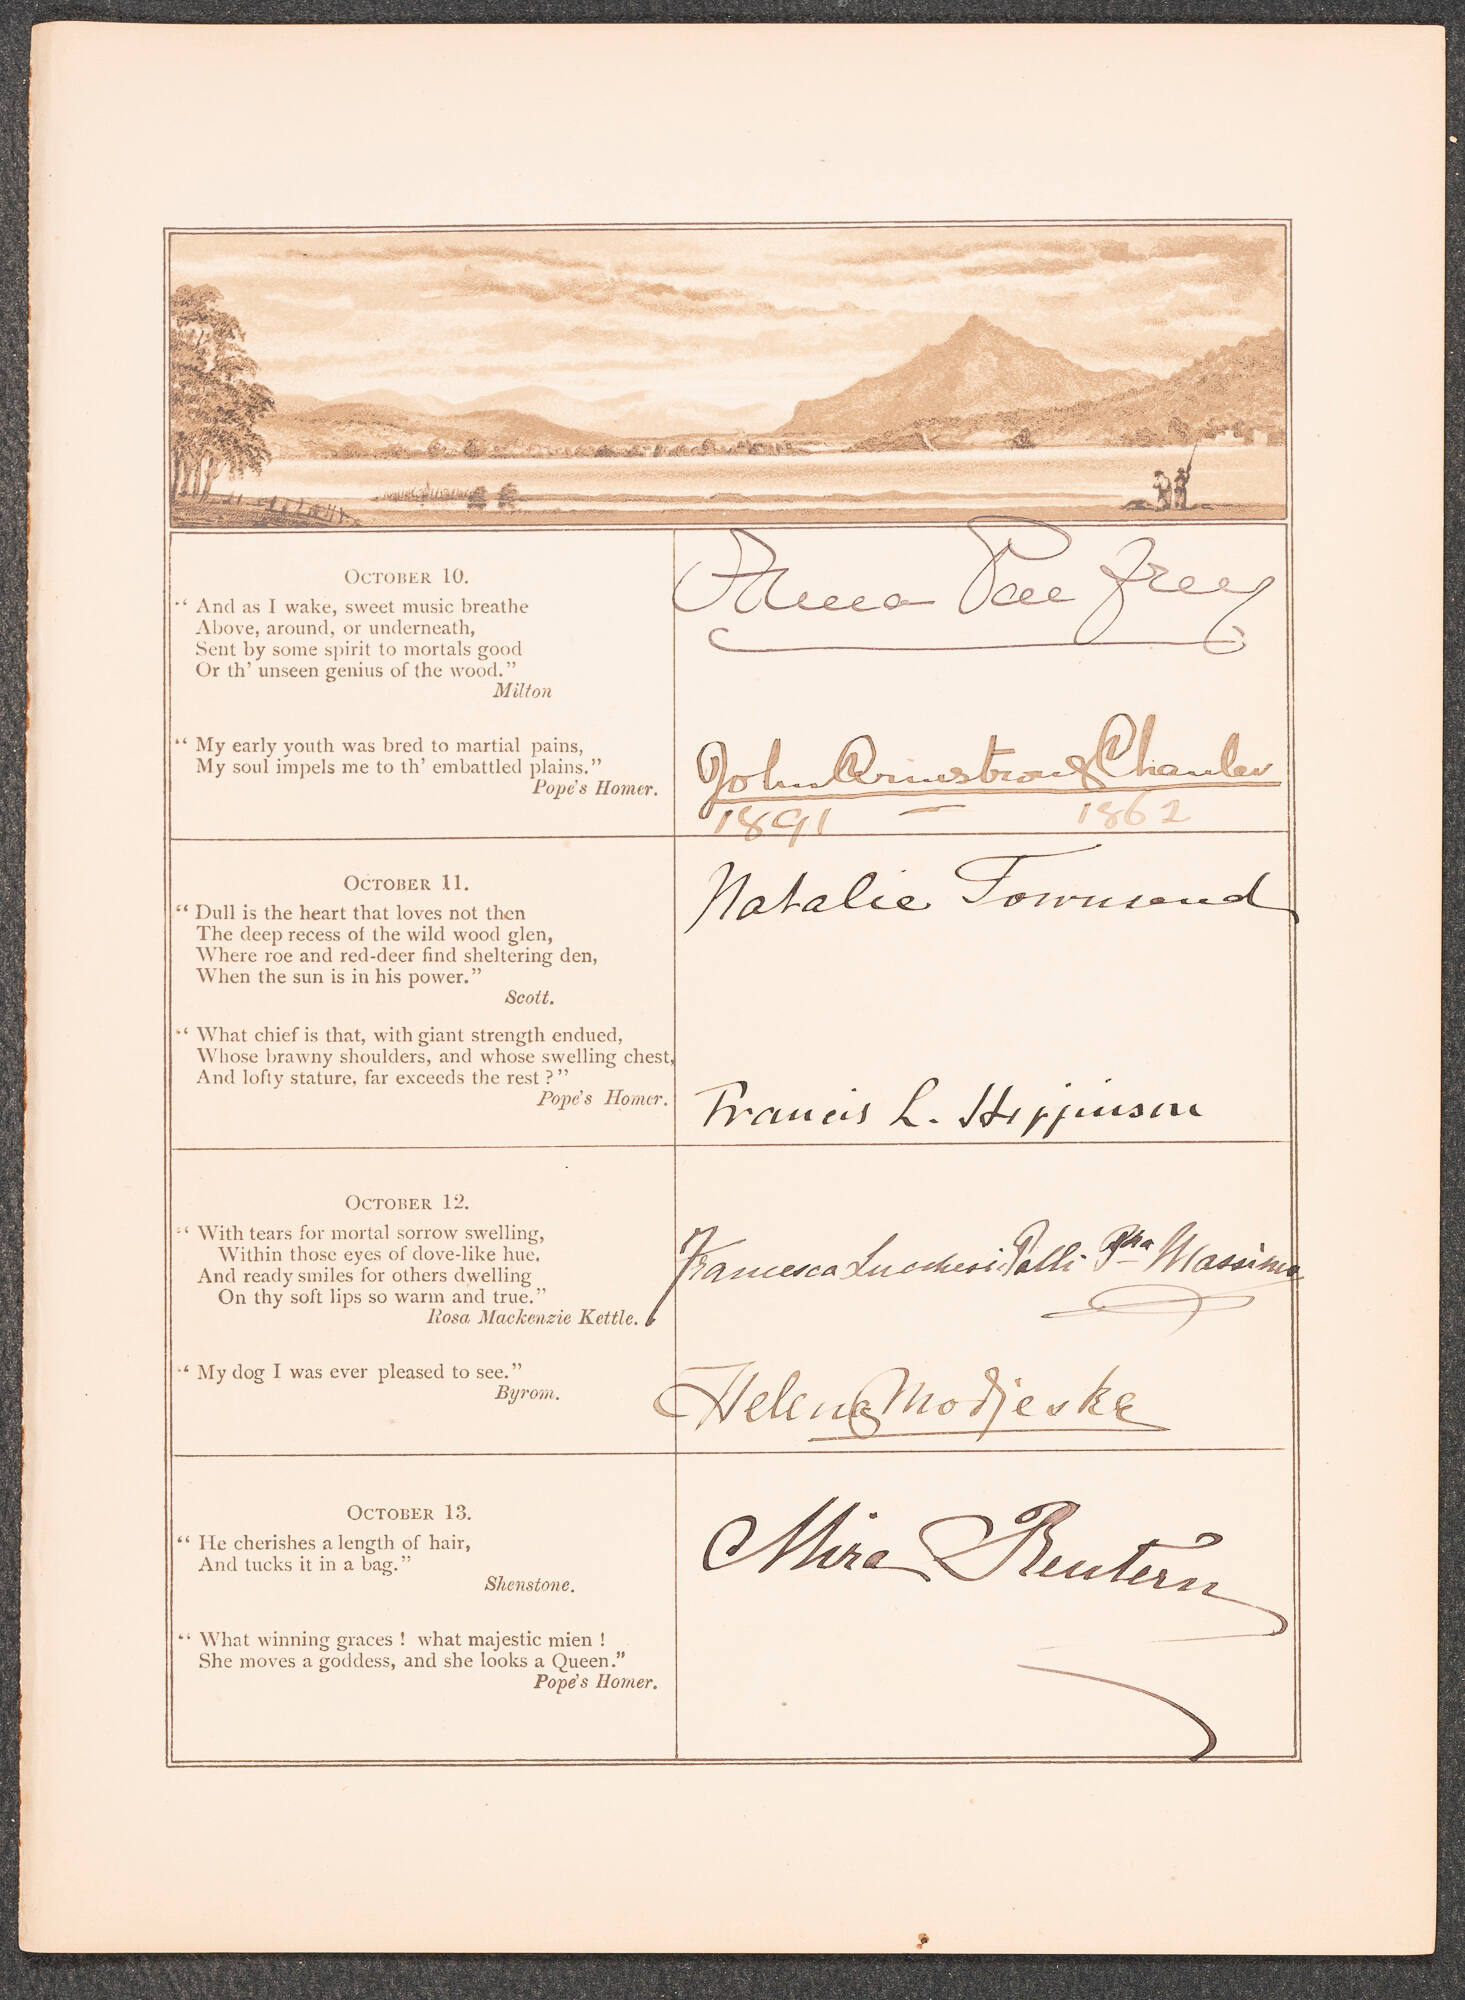 OCTOBER 10.
“ And as I wake, sweet music breathe
Above, around, or underneath,
Sent by some spirit to mortals good
Or th’ unseen genius of the wood.”
Milton
“ My early youth was bred to martial pains,
My soul impels me to th’ embattled plains.”
Pope’s Homer.
John Armstrong Chanler
1891 — 1862
OCTOBER 11.
“ Dull is the heart that loves not then
The deep recess of the wild wood glen,
Where roe and red-deer find sheltering den,
When the sun is in his power.”
Scott.
“ What chief is that, with giant strength endued,
Whose brawny shoulders, and whose swelling chest,
And lofty stature, far exceeds the rest ? ”
Pope’s Homer.
Natalie Townsend
Francis L. Higginson
OCTOBER 12.
“ With tears for mortal sorrow swelling,
Within those eyes of dove-like hue,
And ready smiles for others dwelling
On thy soft lips so warm and true.”
Rosa Mackenzie Kettle.
“ My dog I was ever pleased to see.”
Byrom.
Francesca Lucchesi Palli Pssa Massimo
Helena Modjeska
OCTOBER 13.
“ He cherishes a length of hair,
And tucks it in a bag.”
Shenstone.
“ What winning graces ! what majestic mien !
She moves a goddess, and she looks a Queen.”
Pope’s Homer.
Mira Reutern